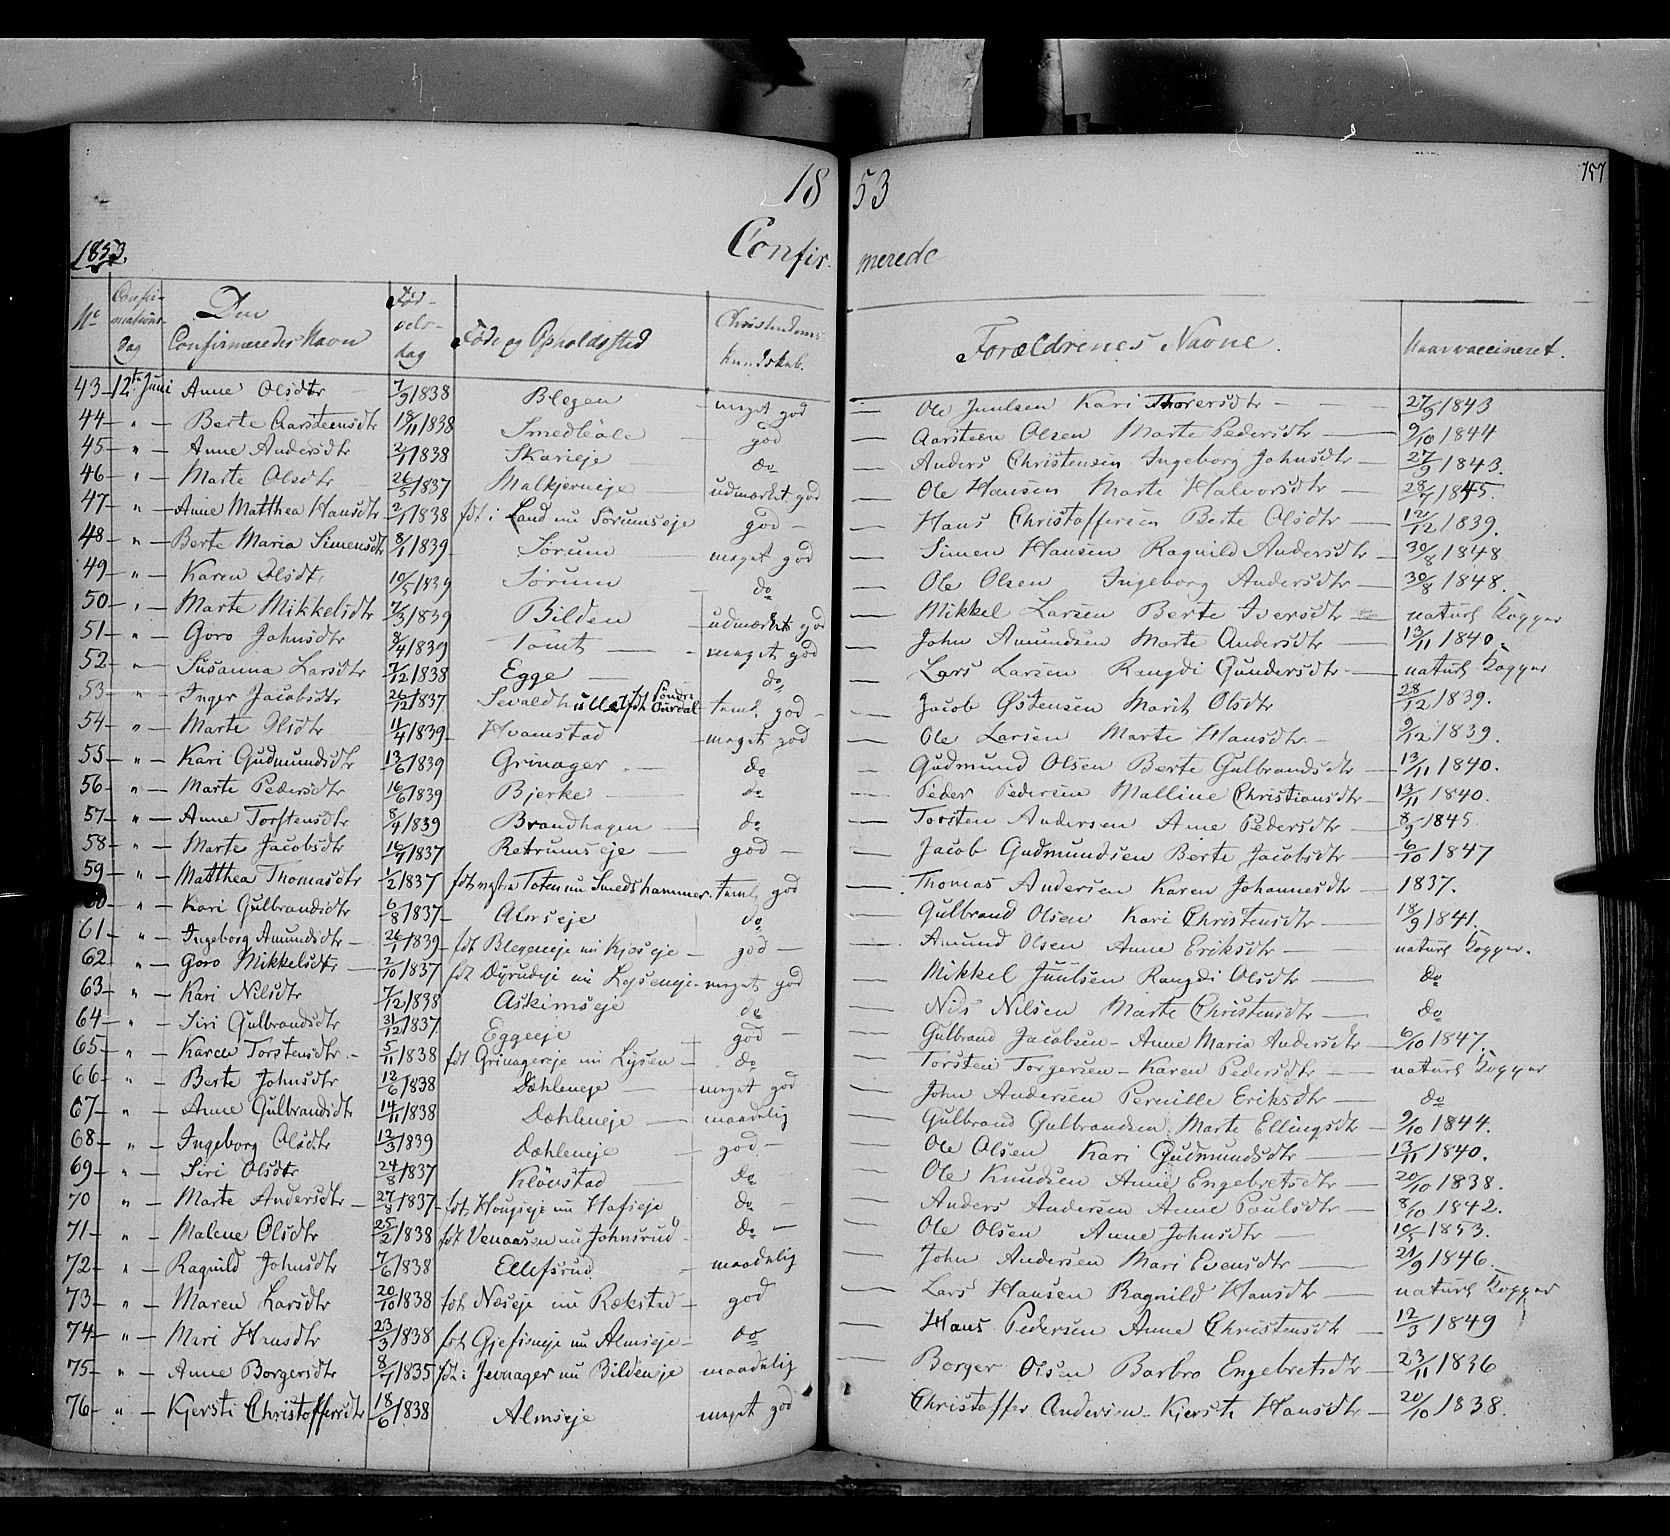 18 53
757
1853.
Confir- merede
No Confir- mations- dag Den Confirmeredes Navn Fød- sels- dag Føde og Opholdssted Christendoms- kundskab. Forældrenes Navne. Naar vaccineret.
43 12te Juni Anne Olsdtr 7/9 1838 Blegen meget god Ole Juulsen Kari Thorersdtr 27/9 1843
44 " Berte Aarsteensdtr 18/11 1838 god Aarsteen Olsen Marte Pedersdtr 9/10 1844
45 " Anne Andersdtr 2/1 1838 Skarieje do Anders Christensen Ingeborg Johnsdtr 27/9 1843.
46 " Marte Olsdtr 26/5 1837 Malkjerneje udmærket god Ole Hansen Marte Halvorsdtr 28/7 1845.
47 " Anne Matthea Hansdtr 2/1 1838 fdt i Land nu Sørumseje god Hans Christoffersen Berte Olsdtr 12/12 1839.
48 " Berte Maria Simensdtr 8/1 1839 Sørum meget god Simen Hansen Ragnild Andersdtr 30/8 1848
49 " Karen Olsdtr 10/5 1839 Sørum do Ole Olsen Ingeborg Andersdtr 30/8 1848.
50 " Marte Mikkelsdtr 7/3 1839 Bilden udmærket god Mikkel Larsen Berte Iversdtr naturl Kopper
51 " Goro Johnsdtr 8/4 1839 Tomt meget god John Amundsen Marte Andersdtr 13/11 1840.
52 " Susanna Larsdtr 7/12 1838 Egge do Lars Larsen Rangdi Gundersdtr naturl Kopper
53 " Inger Jacobsdtr 26/12 1837 Sevaldhullet fdt Søndre Ourdal teml god Jacob Østensen Marit Olsdtr 28/12 1839.
54 " Marte Olsdtr 11/4 1839 Hvamstad meget god Ole Larsen Marte Hansdtr 9/12 1839.
55 " Kari Gudmundsdtr 13/6 1839 Grinager do Gudmund Olsen Berte Gulbrandsdtr 13/11 1840.
56 " Marte Pedersdtr 16/6 1839 Bjerke do Peder Pedersen Malline Christiansdtr 13/11 1840.
57 " Anne Torstensdtr 8/4 1839 Brandhagen do Torsten Andersen Anne Pedersdtr 8/9 1845
58 " Marte Jacobsdtr 16/7 1837 Retrumseje god Jacob Gudmundsen Berte Jacobsdtr 6/10 1847
59 " Matthea Thomasdtr 1/2 1837 fdt Toten nu Smedshammer teml god Thomas Andersen Karen Johannesdtr 1837.
60 " Kari Gulbrandsdtr 6/8 1837 Almseje do Gulbrand Olsen Kari Christensdtr 18/9 1841.
61 " Ingeborg Amundsdtr 26/1 1839 fdt Blegeneje nu Kjoseje god Amund Olsen Anne Eriksdtr naturl Kopper.
62 " Goro Mikkelsdtr 2/10 1837 fdt Dyrudeje nu Lyseneje meget god Mikkel Juulsen Rangdi Olsdtr do
63 " Kari Nilsdtr 7/12 1838 Askimseje do Nils Nilsen Marte Christensdtr do
64 " Siri Gulbrandsdtr 31/12 1837 Eggeeje god Gulbrand Jacobsen Anne Maria Andersdtr 6/10 1847.
65 " Karen Torstensdtr 5/11 1838 fdt Grinagereje nu Lysen do Torsten Torgersen Karen Pedersdtr naturl Kopper
66 " Berte Johnsdtr 12/6 1838 Dæhleneje meget god John Andersen Pernille Eriksdtr do
67 " Anne Gulbrandsdtr 14/11 1838 Dæhleneje maadelig Gulbrand Gulbrandsen Marte Ellingsdtr 9/10 1844.
68 " Ingeborg Olsdtr 12/3 1839 Dæhleneje god Ole Olsen Kari Gudmundsdtr 13/11 1840.
69 " Siri Olsdtr 24/8 1837 Kløvstad do Ole Knudsen Anne Engebretsdtr 20/10 1838.
70 " Marte Andersdtr 27/8 1837 fdt Hougseje nu Hofseje do Anders Andersen Anne Poulsdtr 8/10 1842.
71 " Malene Olsdtr 25/2 1838 fdt Venaasen nu Johnsrud do Ole Olsen Anne Johnsdtr 10/5 1853.
72 " Ragnild Johnsdtr 7/6 1838 Ellefsrud maadelig John Andersen Mari Evensdtr 21/9 1846.
73 " Maren Larsdtr 20/10 1838 fdt Næseje nu Rækstad god Lars Hansen Ragnild Hansdtr naturl Kopper
74 " Mari Hansdtr 23/3 1838 fdt Gjefseneje nu Almseje do Hans Pedersen Anne Christensdtr 12/3 1849
75 " Anne Borgersdtr 8/7 1835 fdt i Jevnager nu Bildeneje maadelig Borger Olsen Barbro Engebretsdtr 23/11 1836
76 " Kjersti Christoffersdtr 18/6 1838 Almseje meget god Christoffer Andersen Kjersti Hansdtr 20/10 1838.